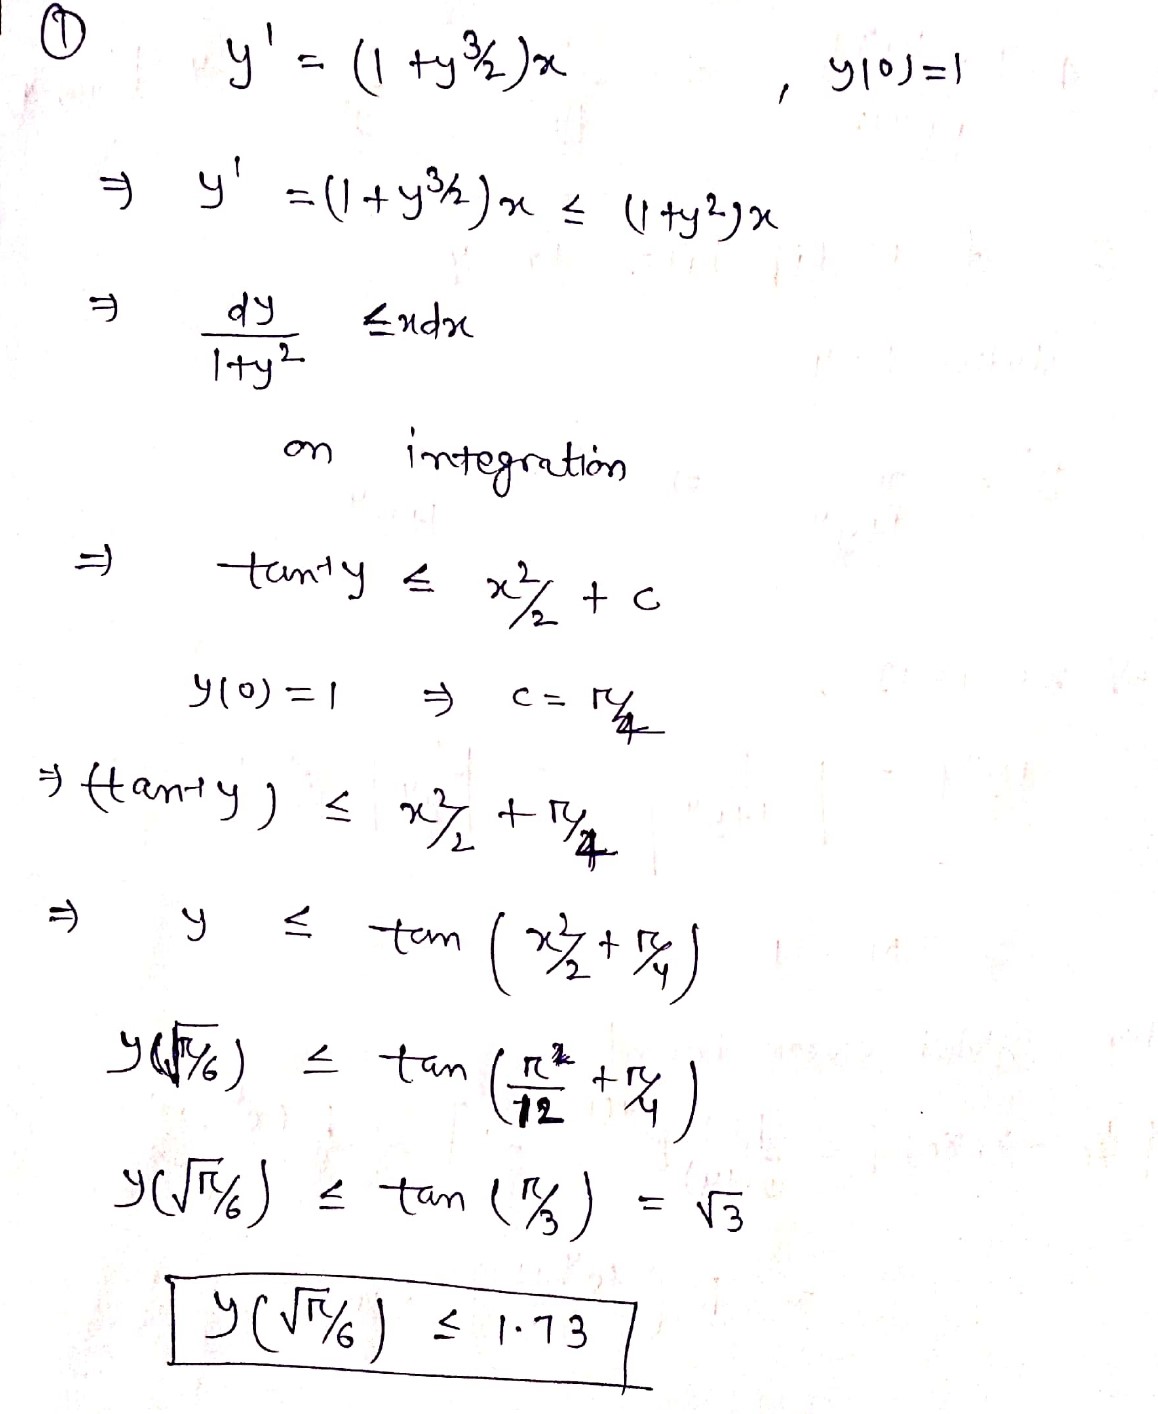 ① y' = (1 + y^3/2)x , y(0)=1
⇒ y' = (1 + y^3/2)x ≤ (1+y²)x
⇒ dy/1+y² ≤ xdx
on integration
⇒ tan⁻¹y ≤ x²/2 + c
y(0) = 1 ⇒ c = π/4
⇒ (tan⁻¹y) ≤ x²/2 + π/4
⇒ y ≤ tan (x²/2 + π/4)
y(√π/6) ≤ tan (π/12 + π/4)
y(√π/6) ≤ tan (π/3) = √3
y(√π/6) ≤ 1.73